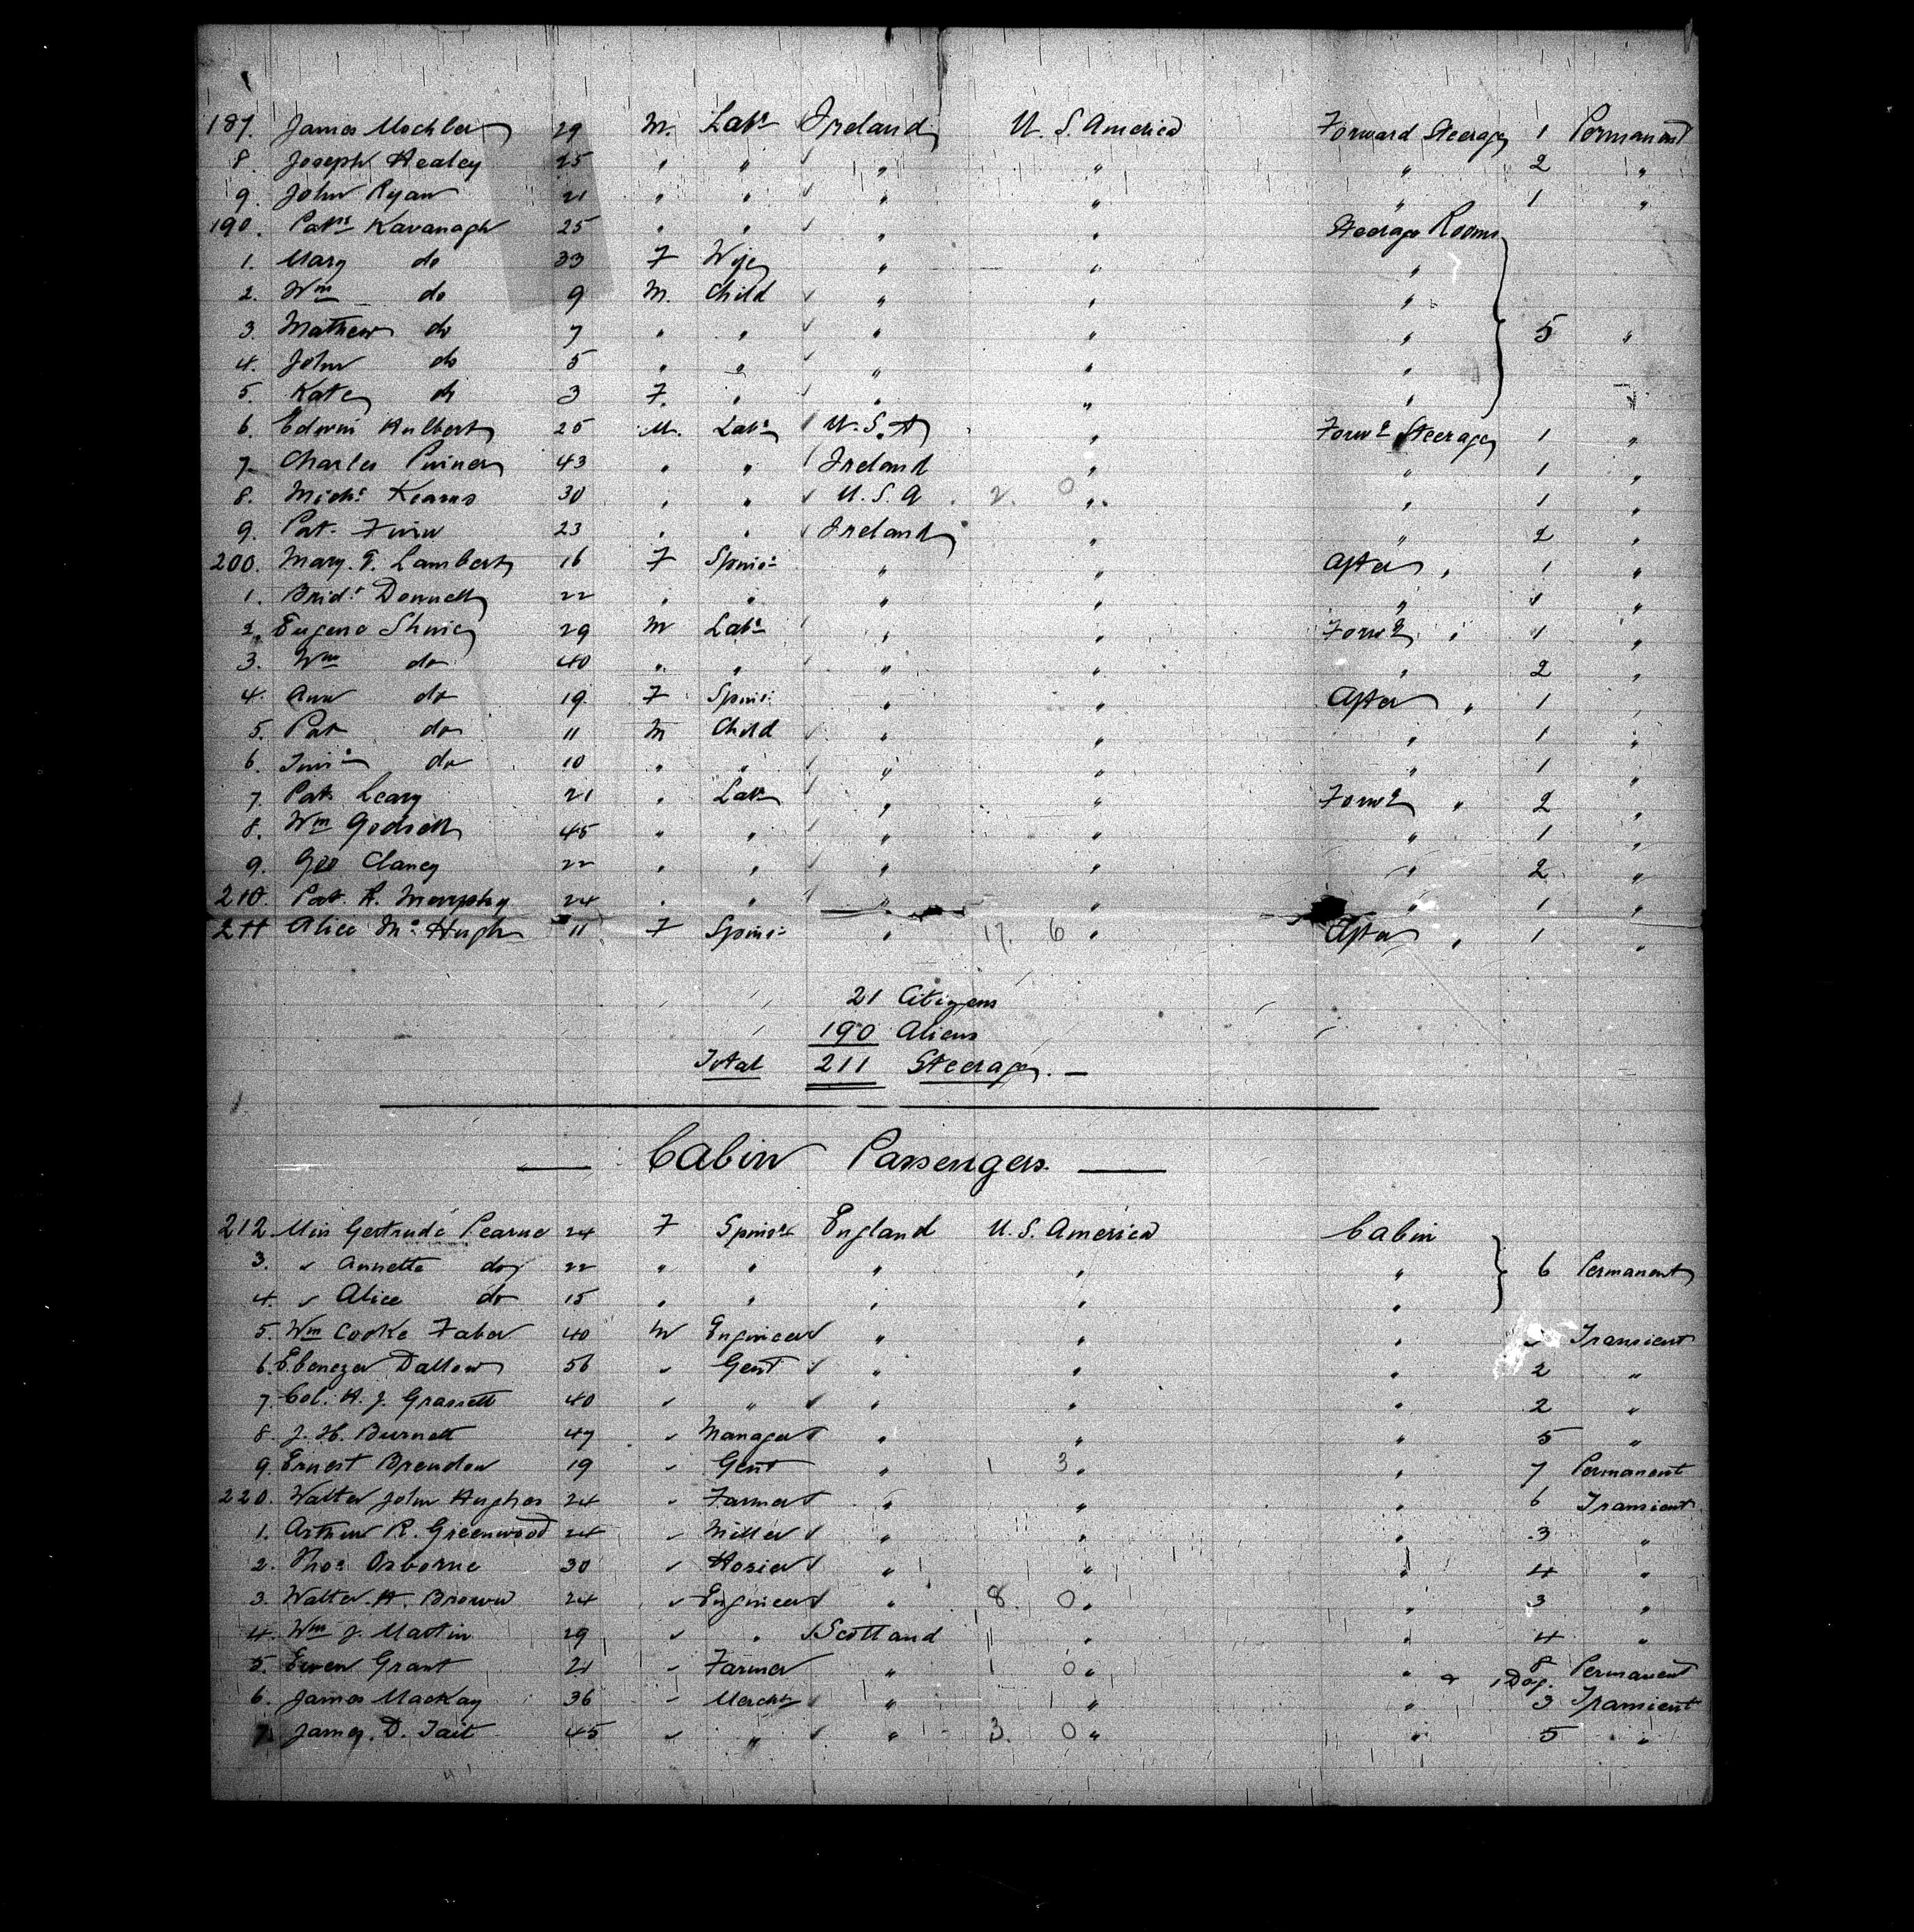 187. James Mockler 29 M. Labr Ireland U. S. America Forward Steerage 1 Permanent
8. Joseph Healey 25 " " " " " 2 "
9. John Ryan 21 " " " " " 1 "
190. Patk Kavanagh 25 " " " " Steerage Rooms
1. Mary do 33 F Wife " " "
2. Wm do 9 M. Child " " "
3 Mathew do 7 " " " " " 5 "
4. John do 5 " " " " "
5. Kate do 3 F. " " " "
6. Edwin Hulbert 25 M. Labr U. S. A " Forwd Steerage 1 "
7 Charles 43 " " Ireland " " 1 "
8. Michl Kearns 30 " " U. S. A 2. 0 " " 1 "
9. Pat. 23 " " Ireland " " 2 "
200. Mary. Lambert 16 F Spinsr " " After " 1 "
1. Bridt Donnell 22 " " " " " 1 "
2. Eugene 29 M Labr " " Forwd " 1 "
3. Wm do 40 " " " " " 2 "
4. Ann do 19 F Spinsr " " After " 1 "
5. Pat do 11 M Child " " " 1 "
6. do 10 " " " " " 1 "
7. Pat Leary 21 " Labr " " Forwd " 2 "
8. Wm Godsell 45 " " " " " 1 "
9. Geo Clancy 22 " " " " " 2 "
210. Pat. R. Murphy 24 " " " " 1 "
211 Alice Mc Hugh 11 F Spinsr " 17. 6 " After " 1 "
21 Citizens
190 Aliens
Total 211 Steerage. —
— Cabin Passengers —
212. Miss Gertrude Pearne 24 F Spinsr England U. S. America Cabin
3. " Annette do 22 " " " " " 6 Permanent
4. " Alice do 15 " " " " "
5. Wm Cooke Faber 40 M Engineer " " " Transient
6. Ebenezer Dallow 56 " Gent " " " 2 "
7. Col. H. J. Grassett 40 " " " " " 2 "
8 J. H. Burnett 47 " Manager " " " 5 "
9. Ernest Brendon 19 " Gent " 1 3 " " 7 Permanent
220. Walter John Hughes 24 " Farmer " " " 6 Transient
1. Arthur R. Greenwood 24 " Miller " " " 3 "
2. Thos Osborne 30 " Hosier " " " 4 "
3. Walter. H. Brown 24 " Engineer " 8. 0 " " 3 "
4. Wm J. Martin 29 " " Scotland " " 4 "
5. Ewen Grant 21 " Farmer " 1 0 " " 8 Permanent
& 1 Dog.
6. James MacKay 36 " Mercht " " " 3 Transient
7. James. D. Tait 45 " " " 3. 0 " " 5 "